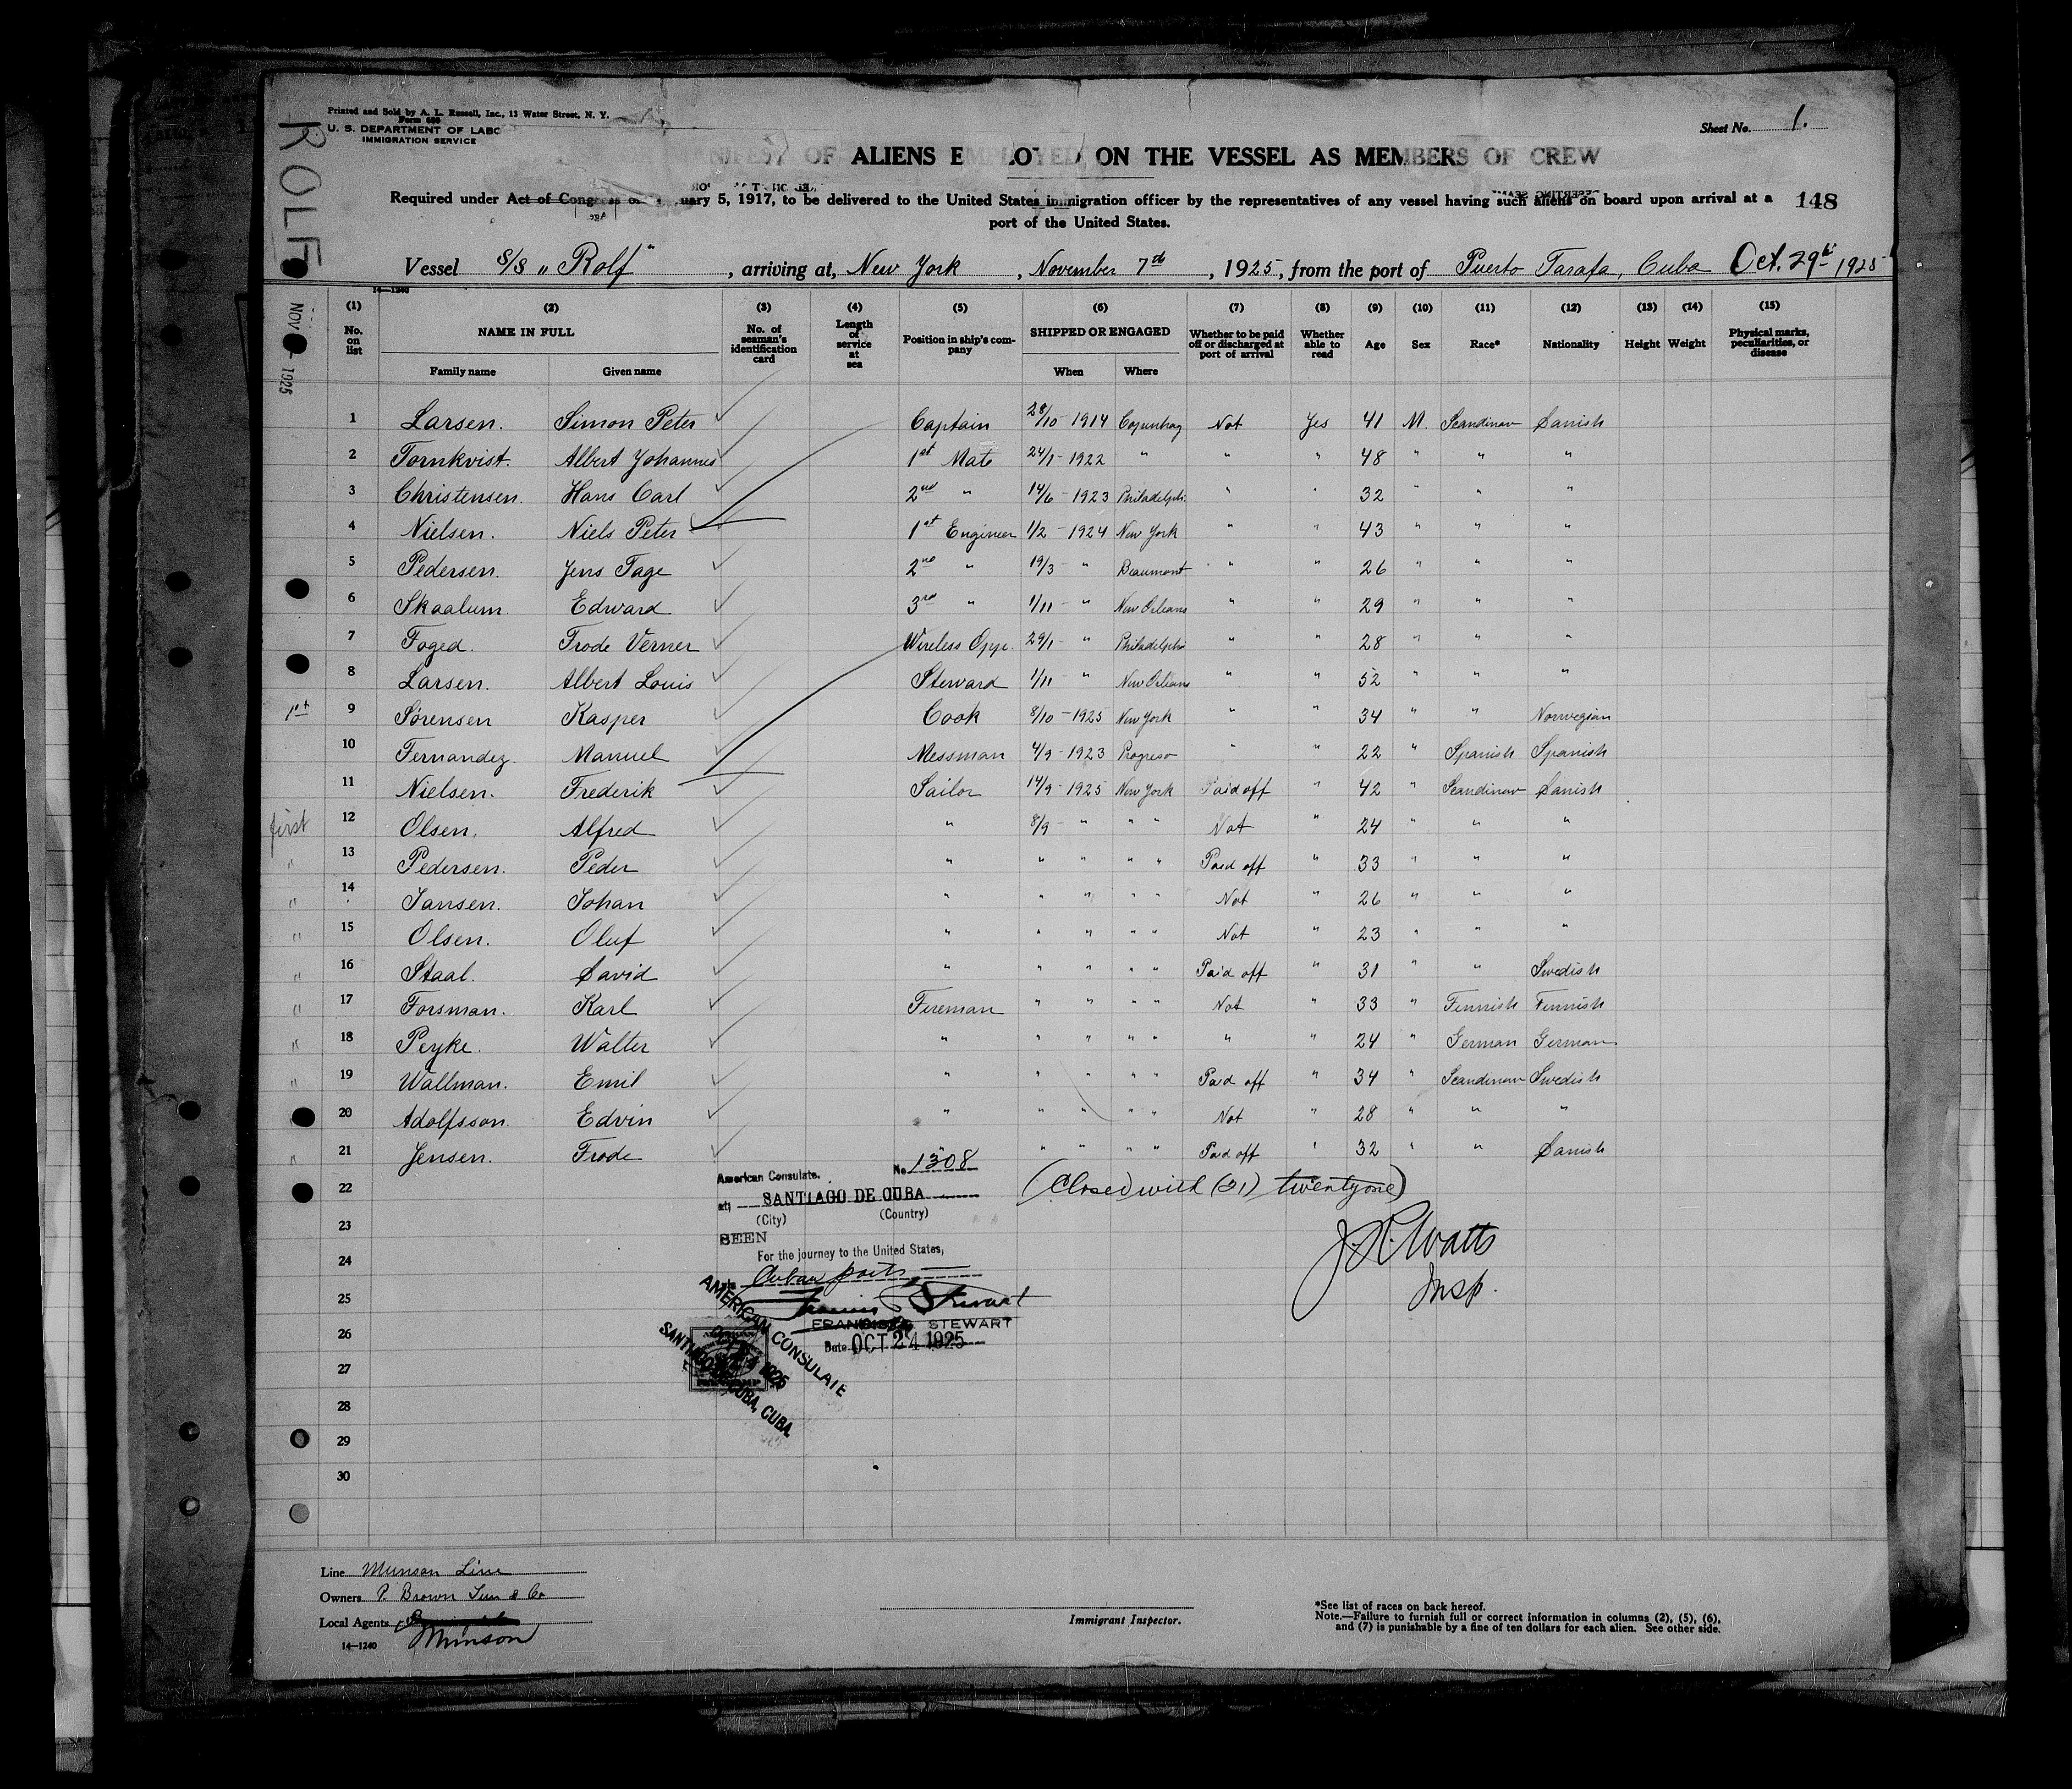 Printed and Sold by A. L. Russell, Inc., 13 Water Street, N. Y.
Form 680
U. S. DEPARTMENT OF LABO
IMMIGRATION SERVICE
Sheet No. 1.
ROLF
MANIFEST OF ALIENS EMPLOYED ON THE VESSEL AS MEMBERS OF CREW
Required under Act of Congress of uary 5, 1917, to be delivered to the United States immigration officer by the representatives of any vessel having such aliens on board upon arrival at a
port of the United States.
148
Vessel S/S „Rolf", arriving at, New York, November 7th, 1925, from the port of Puerto Tarafa, Cuba Oct. 29th 1925
14—1240
NOV 1925
(1) (2) (3) (4) (5) (6) (7) (8) (9) (10) (11) (12) (13) (14) (15)
No. on list NAME IN FULL Family name Given name No. of seaman's identification card Length of service at sea Position in ship's company SHIPPED OR ENGAGED When Where Whether to be paid off or discharged at port of arrival Whether able to read Age Sex Race* Nationality Height Weight Physical marks, peculiarities, or disease
1 Larsen. Simon Peter Captain 28/10 1914 Copenhag Not Yes 41 M. Scandinav Danish
2 Tornkvist. Albert Johannes 1st Mate 24/1 - 1922 " " " 48 " " "
3 Christensen. Hans Carl 2nd " 14/6 - 1923 Philadelphi " " 32 " " "
4 Nielsen. Niels Peter 1st Engineer 1/2 - 1924 New York " " 43 " " "
5 Pedersen. Jens Tage 2nd " 19/3 - " Beaumont " " 26 " " "
6 Skaalum. Edward 3rd " 1/11 - " New Orleans " " 29 " " "
7 Foged. Frode Verner Wireless Opp. 29/1 - " Philadelphi " " 28 " " "
8 Larsen. Albert Louis Steward 1/11 - " New Orleans " " 52 " " "
1st 9 Sørensen Kasper Cook 8/10 - 1925 New York " " 34 " " Norwegian
10 Fernandez. Manuel Messman 4/9 - 1923 Progreso " " 22 " Spanish Spanish
11 Nielsen. Frederik Sailor 14/9 - 1925 New York Paid off " 42 " Scandinav Danish
first 12 Olsen. Alfred " 8/9 - " " " Not " 24 " " "
" 13 Pedersen. Peder " " " " " Paid off " 33 " " "
" 14 Jansen. Johan " " " " " Not " 26 " " "
" 15 Olsen. Oluf " " " " " Not " 23 " " "
" 16 Staal. David " " " " " Paid off " 31 " " Swedish
" 17 Forsman. Karl Fireman " " " " Not " 33 " Finnish Finnish
" 18 Peyke. Walter " " " " " " " 24 " German German
" 19 Wallman. Emil " " " " " Paid off " 34 " Scandinav Swedish
20 Adolfsson Edvin " " " " " Not " 28 " " "
" 21 Jensen. Frode " " " " " Paid off " 32 " " Danish
22
23
24
25
26
27
28
29
30
American Consulate. No. 1308
at, SANTIAGO DE CUBA
(City) (Country)
SEEN
For the journey to the United States,
Cuban ports
Francis Stewart
FRANCIS STEWART
Date OCT 24 1925
AMERICAN CONSULATE
SANTIAGO DE CUBA, CUBA.
(Closed with (21) twentyone)
J. R. Watts
Insp.
Line Munson Line
Owners P. Brown Jun & Co
Local Agents
Munson
14—1240
Immigrant Inspector.
*See list of races on back hereof.
Note.—Failure to furnish full or correct information in columns (2), (5), (6),
and (7) is punishable by a fine of ten dollars for each alien. See other side.